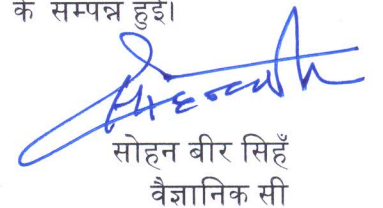 के सम्पन्न हुई।
सोहन बीर सिहँ
वैज्ञानिक सी